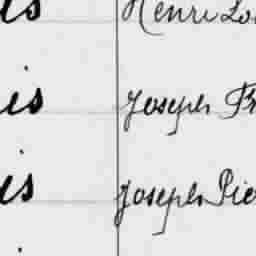 is Henri Lo
is Joseph Fr
is Joseph Pie